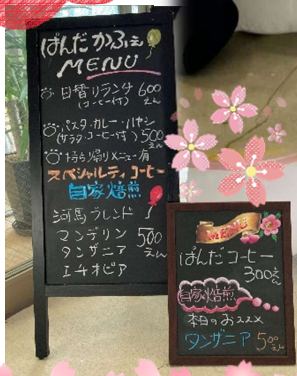 ぱんだかふぇ
MENU
日替りランチ 600
(コーヒー付) えん
パスタ・カレー・ハヤシ
(サラダ、コーヒー付) 500
えん
持ち帰りメニュー有
スペシャルティコーヒー
自家焙煎
河馬ブレンド
マンデリン 500
タンザニア えん
エチオピア
ぱんだコーヒー
300えん
自家焙煎
本日のおススメ
タンザニア 500
えん